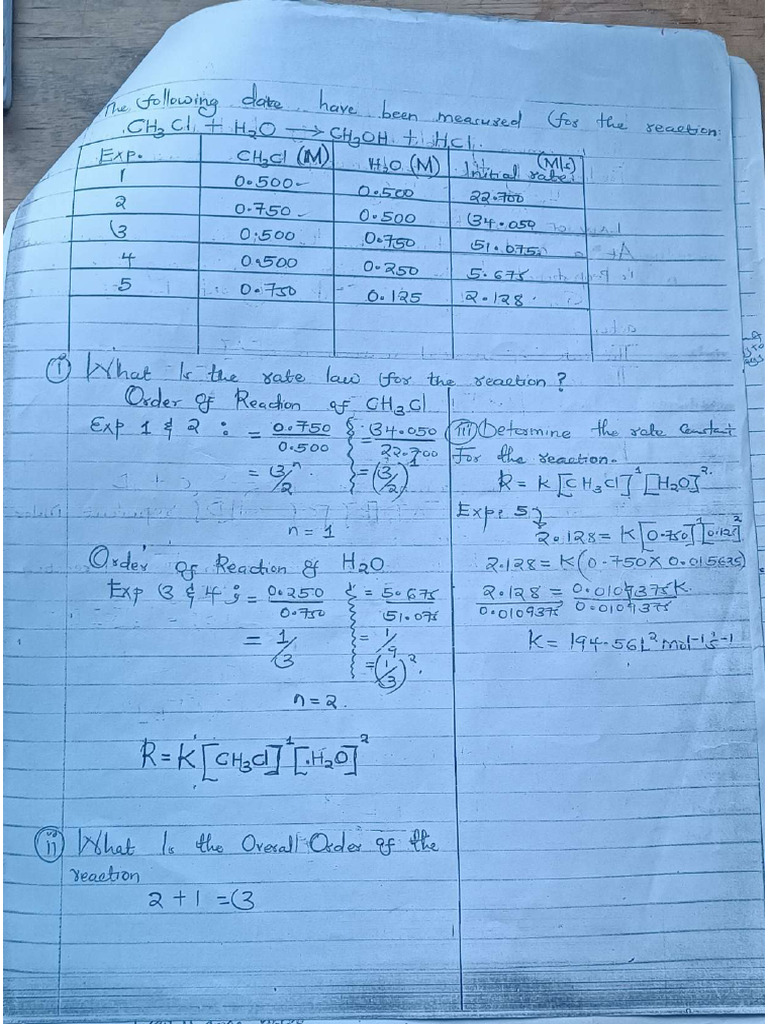 The following date have been measured for the reaction:
CH3Cl + H2O → CH3OH + HCl.
Exp. CH3Cl (M) H2O (M) Initial rate: (M/s)
1 0.500 0.500 22.700
2 0.750 0.500 34.050
3 0.500 0.750 51.075
4 0.500 0.250 5.675
5 0.750 0.125 2.128
(i) What Is the rate law for the reaction?
Order of Reaction of CH3Cl
Exp 1 & 2 : = 0.750/0.500 = 34.050/22.700
= (3/2)^n = (3/2)^1
n = 1
Order of Reaction of H2O
Exp 3 & 4 ; = 0.250/0.750 = 5.675/51.075
= 1/3 = 1/9
= (1/3)^2.
n = 2.
R = K[CH3Cl]^1[H2O]^2
(ii) What Is the Overall Order of the
reaction
2 + 1 = 3
(iii) Determine the rate Constant
for the reaction.
R = K[CH3Cl]^1[H2O]^2.
Exp: 5
2.128 = K[0.750]^1[0.125]^2
2.128 = K(0.750 X 0.015625)
2.128/0.0109375 = 0.0109375K/0.0109375
K = 194.56L^2mol^-1s^-1